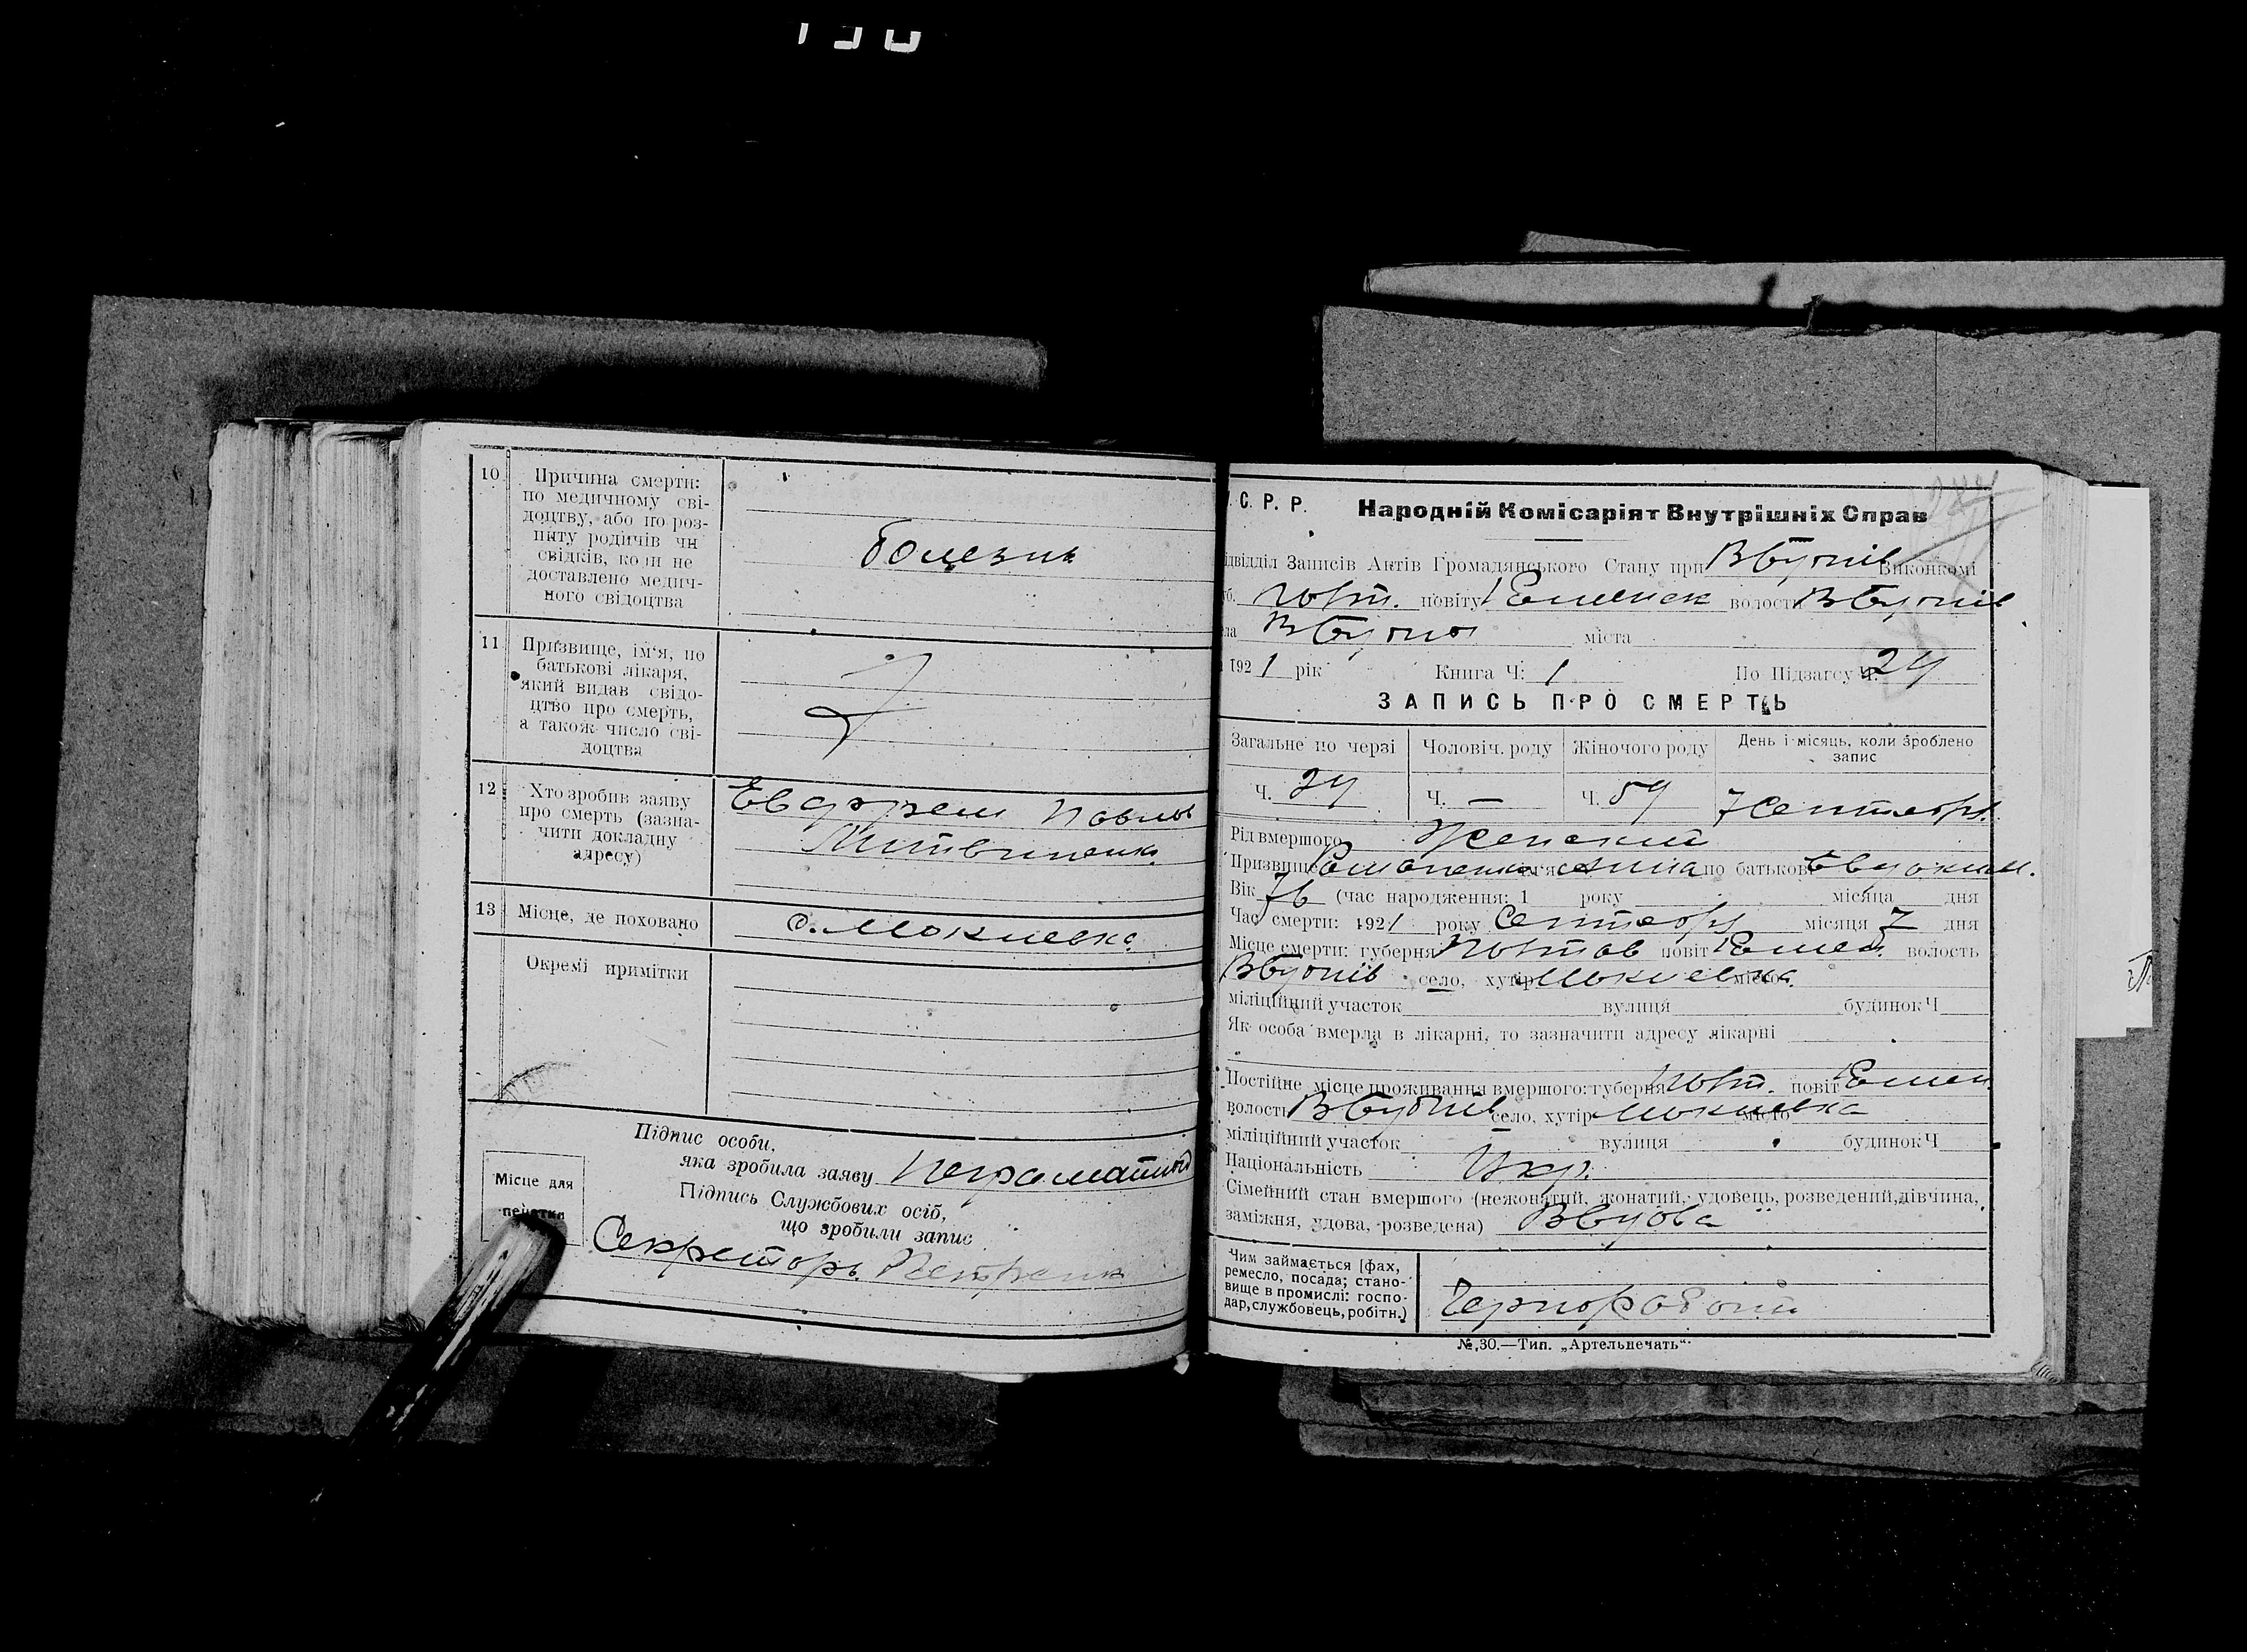 10. Причина смерти:
по медичному сві-
доцтву, або по роз-
питу родичів чи
свідків, коли не
доставлено медич-
ного свідоцтва
болезнь
11. Призвище, ім'я, по
батькові лікаря,
який видав свідо-
цтво про смерть,
а також число сві-
доцтва
12. Хто зробив заяву
про смерть (зазна-
чити докладну
адресу)
Павлов
Литвиненко
13. Місце, де поховано
с. Мокиевка
Окремі примітки
Підпис особи,
яка зробила заяву
Підпись Службових осіб,
що зробили запис
Місце для
печатки
Секретарь Петренко
С. Р. Р. Народній Комісаріят Внутрішніх Справ
ідвідділ Записів Актів Громадянського Стану при Виконкомі
Полт. повіту Роменск волости
міста
1921 рік Книга Ч: 1 По Підзагсу Ч.
ЗАПИСЬ ПРО СМЕРТЬ
Загальне по черзі Чоловіч. роду Жіночого роду День і місяць, коли зроблено
запис
Ч. Ч. — Ч. 7 Сентября
Рід вмершого Женский
Призвище Романенко ім'я Анна по батькові Евдоким.
Вік 76 (час народження: 1 року місяца дня
Час смерти: 1921 року Сентября місяця 7 дня
Місце смерти: губерня Полтав повіт Ромен. волость
село, хутір Мокиевка місто
міліційний участок вулиця будинок Ч
Як особа вмерла в лікарні, то зазначити адресу лікарні
Постійне місце проживання вмершого: губерня Полт. повіт Ромен.
волость село, хутір Мокиевка місто
міліційний участок вулиця будинок Ч
Національність Укр.
Сімейний стан вмершого (нежонатий, жонатий, удовець, розведений, дівчина,
заміжня, удова, розведена) Вдова
Чим займається [фах,
ремесло, посада; стано-
вище в промислі: госпо-
дар, службовець, робітн.)
№ 30.—Тип. „Артельпечать“